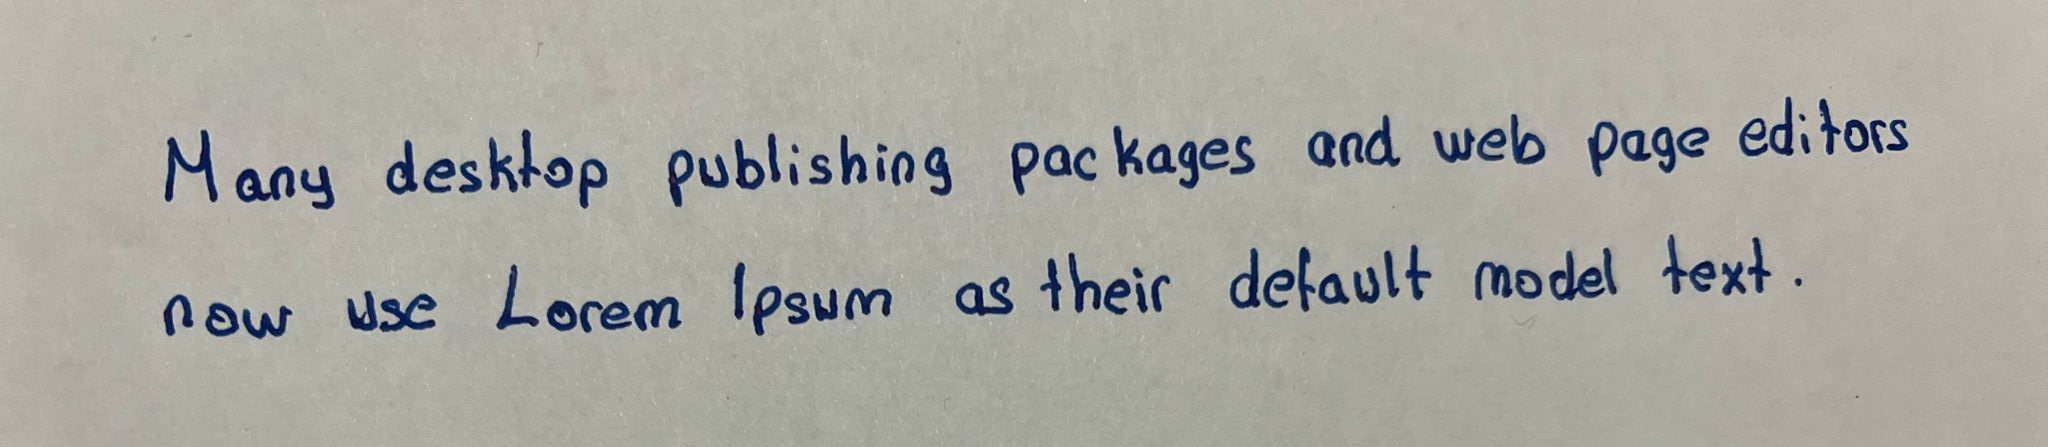 Many desktop publishing packages and web page editors
now use Lorem Ipsum as their default model text.